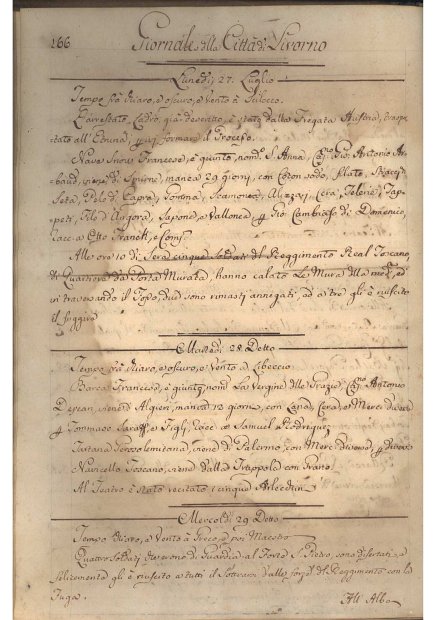 166
Giornale della Città di Livorno
Lunedì 27. Luglio
Tempo frà chiaro, e oscuro, e Vento à Scilocco.
L'arrestato, Ladro, già descritto, è stato dalla Fregata Austria,
tato all' per formare il Processo.
Nave Snow Francese, è giunto, nom.º S. Anna, Cap.no Gio: Antonio
baud, viene di Smirne, manca 29 giorni, con Coton sodo, filato,
Seta, Pelo di Capra, Gomma, Scamonea, Alizzari, Cera, Telerie, Tap-
peti, Filo d'Angora, Sapone, e Vallonea p Gio: Cambiaso di Domenico,
Pace, e Otto Franck, e Comp.
Alle ore 10 di Sera cinque Soldati del Reggimento Real Toscano,
di Quartiere da Porta Murata, hanno calato le Mura della med.ma, ed
in traversando il Fosso, due sono rimasti annegati, ed à tre gli è riuscito
il fuggire
Martedì 28 Detto
Tempo frà chiaro, e oscuro, e Vento à Libeccio
Barca Francese, è giunta, nom.ª La Vergine delle Grazie, Cap.no Antonio
viene d'Algieri, manca 12 giorni, con Lana, Cera, e Merci diverse
p Tommaso e Figli, Pace, e Samuel Rodriguez
Tartana Gerosolimitana, viene di Palermo, con Merci diverse, p diversi
Navicello Toscano, viene dalla Trappola con Grano.
Al Teatro è stato recitato i cinque Arlecchini
Mercoldì 29 Detto
Tempo chiaro, e Vento à Greco, e poi Maestro
Quattro Soldati che erono di Guardia al Forte S. Pietro, sono disertati, e
felicemente gli è riuscito a tutti il sottrarsi dalle forze del Reggimento con la
Fuga.
All' Alba